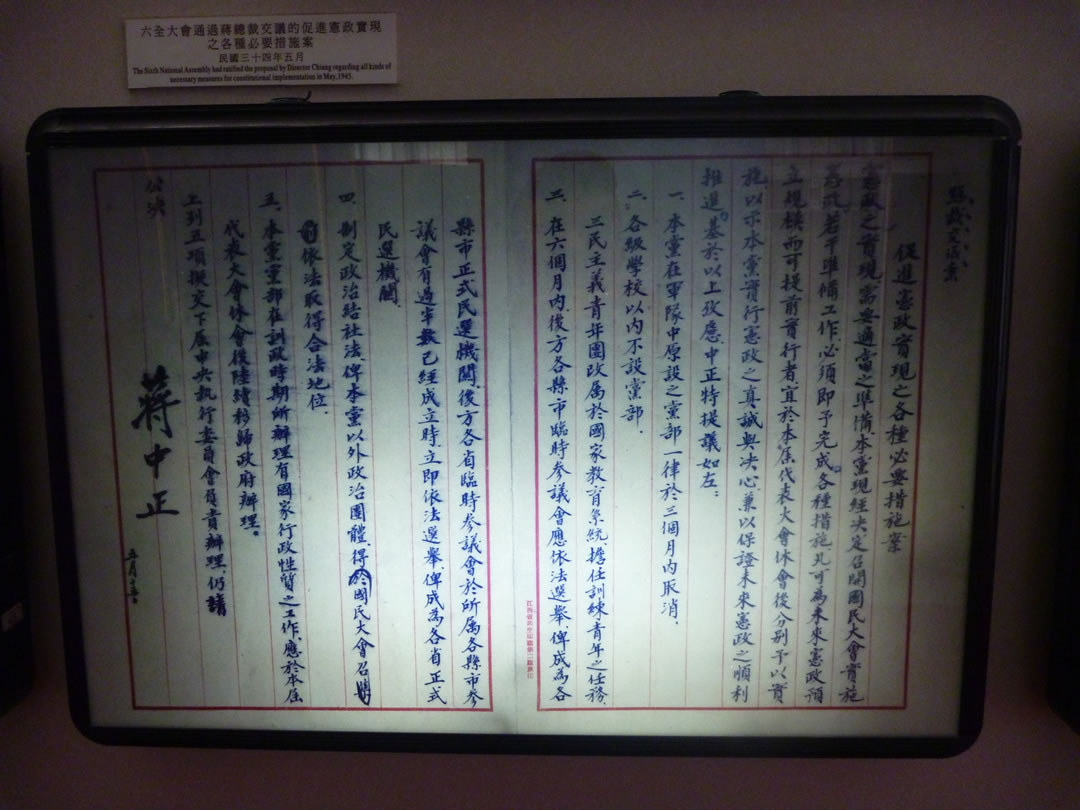 六全大會通過蔣總裁交議的促進憲政實現
之各種必要措施案
民國三十四年五月
The Sixth National Assembly had ratified the proposal by Director Chiang regarding all kinds of
necessary measures for constitutional implementation in May, 1945.
總裁交議案
促進憲政實現之各種必要措施案
憲政之實現需要適當之準備本黨現經決定召開國民大會實施
憲政若干準備工作必須即予完成各種措施凡可為未來憲政預
立規模而可提前實行者宜於本屆代表大會休會後分別予以實
施以示本黨實行憲政之真誠與决心兼以保證未來憲政之順利
推進基於以上
中正特提議如左:
一、本黨在軍隊中原設之黨部一律於三個月內取消.
二、各級學校以內不設黨部.
三民主義青年團改屬於國家教育系統、擔任訓練青年之任務.
三、在六個月內、後方各縣市臨時參議會應依法選舉、俾成為各
縣市正式民選機關、後方各省臨時參議會於所屬各縣市參
議會有過半數已經成立時、立即依法選舉、俾成為各省正式
民選機關.
四、制定政治結社法、俾本黨以外政治團體、得於國民大會召
依法取得合法地位.
五、本黨黨部在訓政時期所辦理有國家行政性質之工作、應於本屆
代表大會休會後陸續移歸政府辦理。
上列五項擬交下屆中央執行委員會負責辦理、仍請
公決
蔣中正
五月